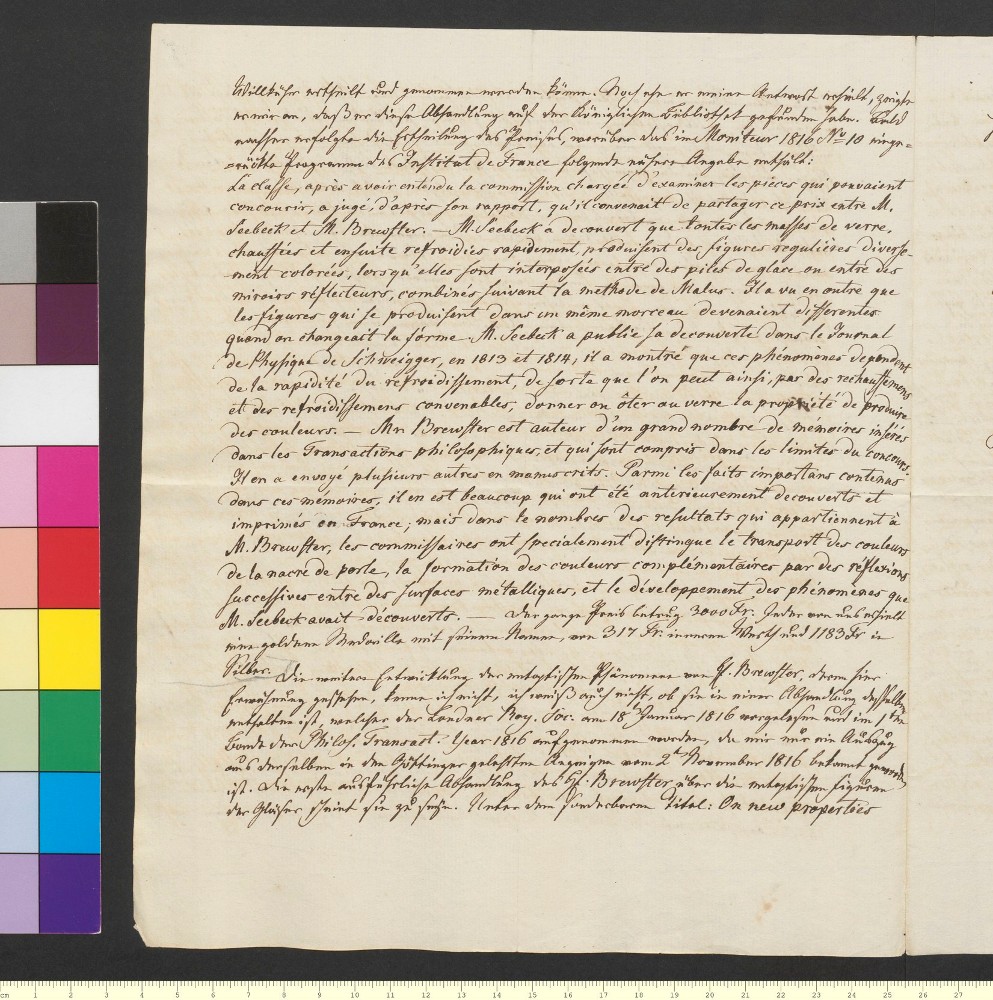 Willkühr ertheilt und genommen werden könne. Noch ehe er meine Antwort erhielt, zeigte
er mir an, daß er diese Abhandlung auf der Königlichen Bibliothek gefunden habe. Bald
nachher erfolgte die Ertheilung des Preises, worüber das im Moniteur 1816 No 10 einge-
-rückte Programm des Institut de France folgende nähere Angabe enthält:
La classe, après avoir entendu la commission chargée d'examiner les pieces qui pouvaient
concourir, a jugé, d'après son rapport, qu'il convenait de partager ce prix entre M.
Seebeck et M. Brewster. — M. Seebeck a decouvert que toutes les masses de verre,
chauffées et ensuite refroidies rapidement, produisent des figures regulières diverse-
-ment colorées, lorsqu'elles sont interposées entre des piles de glace ou entre des
miroirs réflecteurs, combinés suivant la methode de Malus. Il a vu en outre que
les figures qui se produisent dans un même morceau devenaient differentes
quand on changeait la forme. M. Seebeck a publié sa decouverte dans le Journal
de Physique de Schweigger, en 1813 et 1814; il a montré que ces phénomènes dependent
de la rapidité du refroidissement, de sorte que l'on peut ainsi, par des rechauffemens
et des refroidissemens convenables, donner ou ôter au verre la propriété de produire
des couleurs. — Mr. Brewster est auteur d'un grand nombre de mémoires insérés
dans les Transactions philosophiques, et qui sont compris dans les limites du concours
Il en a envoyé plusieurs autres en manuscrits. Parmi les faits importans contenus
dans ces mémoires, il en est beaucoup qui ont été anterieurement decouverts et
imprimés en France; mais dans le nombres des resultats qui appartiennent à
M. Brewster, les commissaires ont specialement distingue le transport des couleurs
de la nacre de perle, la formation des couleurs complémentaires par des réflexions
successives entre des surfaces métalliques, et le développement des phénomènes que
M. Seebeck avait découverts. — Der ganze Preis betrug 3000 Fr. Jeder von uns erhielt
eine goldene Medaille mit seinem Namen, von 317 Fr. innerem Werth und 1183 Fr in
Silber.
Die weitere Entwicklung der entoptischen Phänomene von H. Brewster, deren hier
Erwähnung geschehen, kenne ich nicht, ich weiß auch nicht, ob sie in einer Abhandlung desselben
enthalten ist, welche der Londner Roy. Soc. am 18t Januar 1816 vorgelesen und im 1ten
Bande der Philos. Transact. Year 1816 aufgenommen worden, da mir nur ein Auszug
aus derselben in den Göttinger gelehrten Anzeigen vom 2t November 1816 bekannt geworden
ist. Die erste ausführliche Abhandlung des H. Brewster über die entoptischen Figuren
der Gläser, scheint sie zu seyn. Unter dem sonderbaren Titel: On new properties